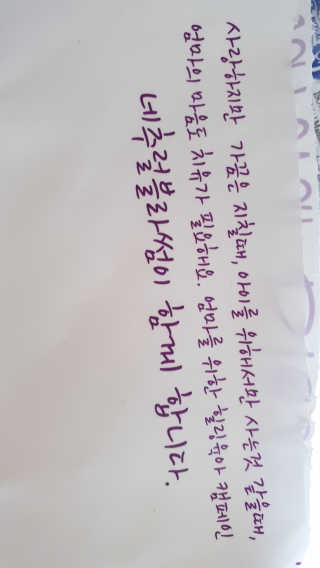 사랑하지만 가끔은 지칠때, 아이를 위해서만 사는것 같을때,
엄마의 마음도 치유가 필요해요. 엄마를 위한 힐링육아 캠페인
네츄럴블라썸이 함께 합니다.